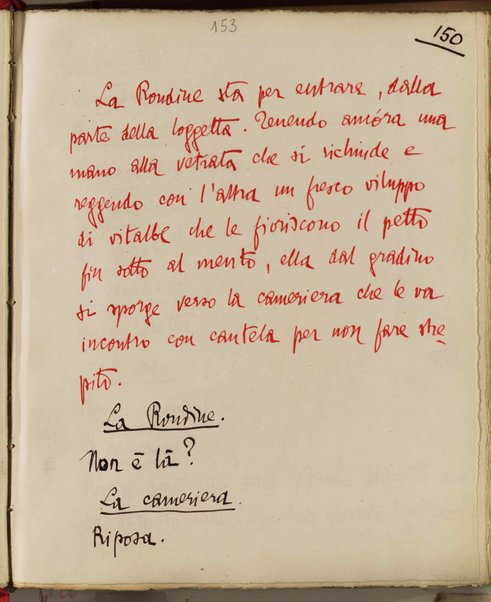 153
150
La Rondine sta per entrare, dalla
parte della loggetta. Tenendo ancóra una
mano alla vetrata che si richiude e
reggendo con l'altra un fresco viluppo
di vitalbe che le fioriscono il petto
fin sotto al mento, ella dal gradino
si sporge verso la cameriera che le va
incontro con cautela per non fare stre
pito.
La Rondine.
Non è là?
La cameriera.
Riposa.